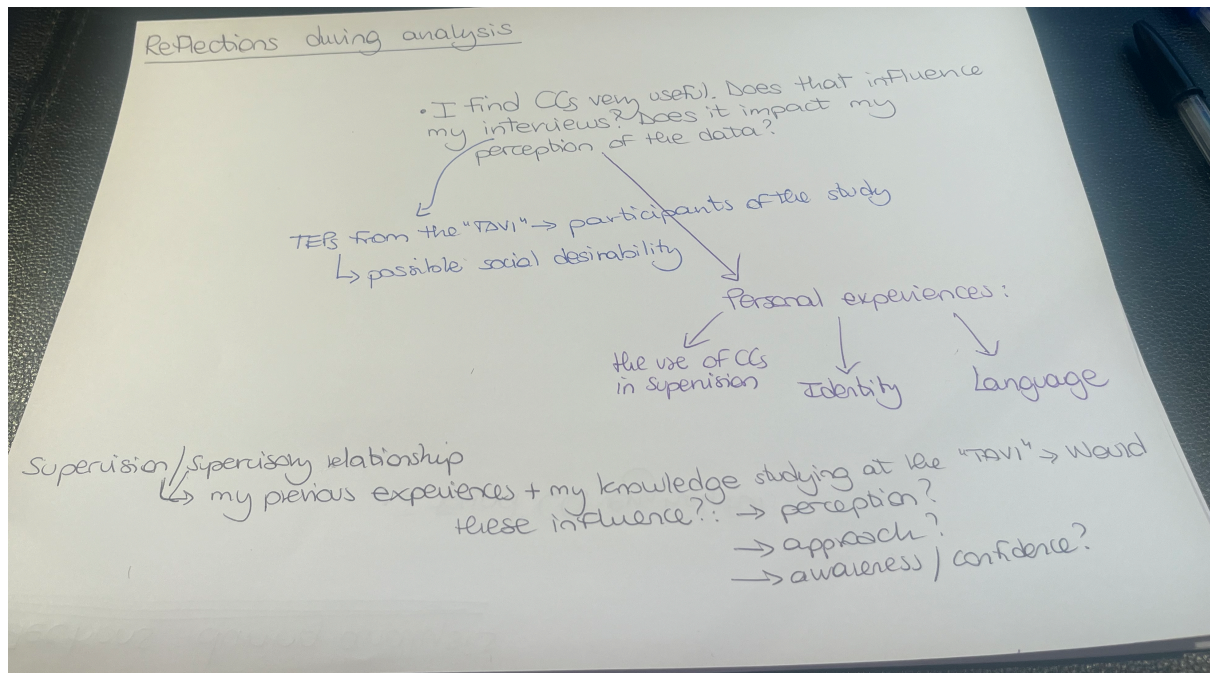 Reflections during analysis
• I find CCs very useful. Does that influence
my interviews? Does it impact my
perception of the data?
TEPs from the "TAVI" → participants of the study
↳ possible social desirability
Personal experiences:
the use of CCs
in supervision
Identity
Language
Supervision/Supervisory relationship
↳ my previous experiences + my knowledge studying at the "TAVI" → Would
these influence?: → perception?
→ approach?
→ awareness / confidence?